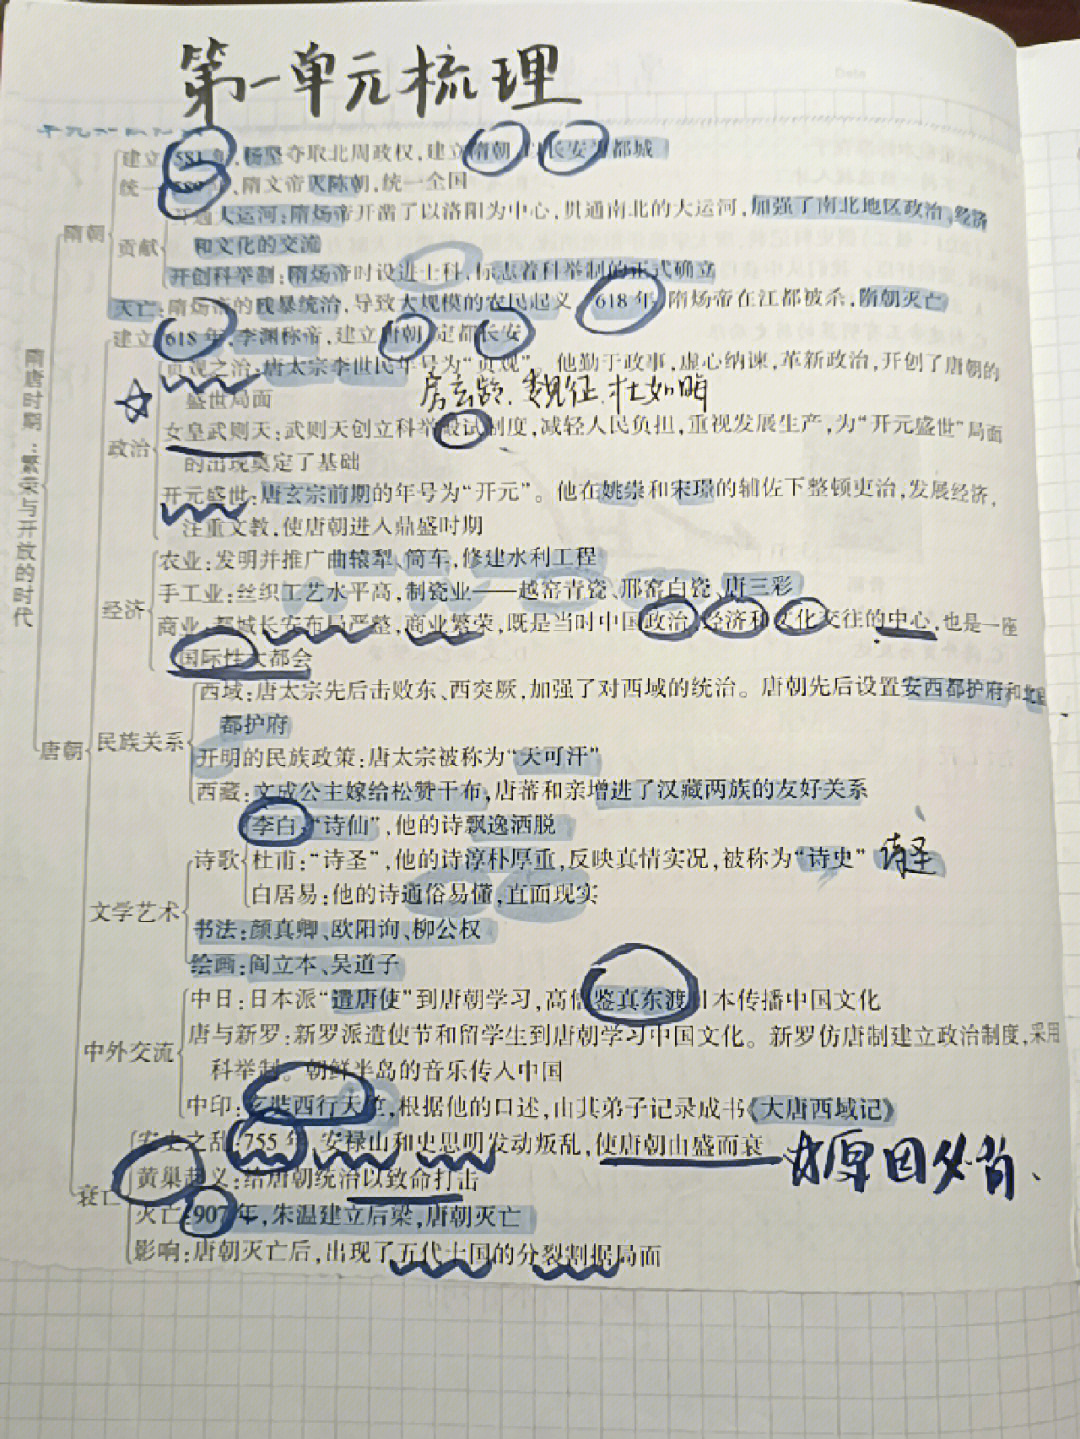 第一单元梳理
建立:581年,杨坚夺取北周政权,建立隋朝,以长安为都城
统一:589年,隋文帝灭陈朝,统一全国
开通大运河:隋炀帝开凿了以洛阳为中心,贯通南北的大运河,加强了南北地区政治、经济
隋朝
贡献
和文化的交流
开创科举制:隋炀帝时设进士科,标志着科举制的正式确立
灭亡:隋炀帝的残暴统治,导致大规模的农民起义,618年,隋炀帝在江都被杀,隋朝灭亡
建立:618年,李渊称帝,建立唐朝,定都长安
隋唐时期:繁荣与开放的时代
贞观之治:唐太宗李世民年号为“贞观”。他勤于政事,虚心纳谏,革新政治,开创了唐朝的
盛世局面
房玄龄、魏征、杜如晦
女皇武则天:武则天创立科举殿试制度,减轻人民负担,重视发展生产,为“开元盛世”局面
政治
的出现奠定了基础
开元盛世:唐玄宗前期的年号为“开元”。他在姚崇和宋璟的辅佐下整顿吏治,发展经济,
注重文教,使唐朝进入鼎盛时期
农业:发明并推广曲辕犁、筒车,修建水利工程
手工业:丝织工艺水平高,制瓷业——越窑青瓷、邢窑白瓷、唐三彩
经济
商业:都城长安布局严整,商业繁荣,既是当时中国政治、经济和文化交往的中心,也是一座
国际性大都会
西域:唐太宗先后击败东、西突厥,加强了对西域的统治。唐朝先后设置安西都护府和北庭
都护府
唐朝
民族关系
开明的民族政策:唐太宗被称为“天可汗”
西藏:文成公主嫁给松赞干布,唐蕃和亲增进了汉藏两族的友好关系
李白:“诗仙”,他的诗飘逸洒脱
诗歌
杜甫:“诗圣”,他的诗淳朴厚重,反映真情实况,被称为“诗史” 诗圣
白居易:他的诗通俗易懂,直面现实
文学艺术
书法:颜真卿、欧阳询、柳公权
绘画:阎立本、吴道子
中日:日本派“遣唐使”到唐朝学习,高僧鉴真东渡日本传播中国文化
唐与新罗:新罗派遣使节和留学生到唐朝学习中国文化。新罗仿唐制建立政治制度,采用
中外交流
科举制。朝鲜半岛的音乐传入中国
中印:玄奘西行天竺,根据他的口述,由其弟子记录成书《大唐西域记》
安史之乱:755年,安禄山和史思明发动叛乱,使唐朝由盛而衰
原因必背、
黄巢起义:给唐朝统治以致命打击
衰亡
灭亡:907年,朱温建立后梁,唐朝灭亡
影响:唐朝灭亡后,出现了五代十国的分裂割据局面